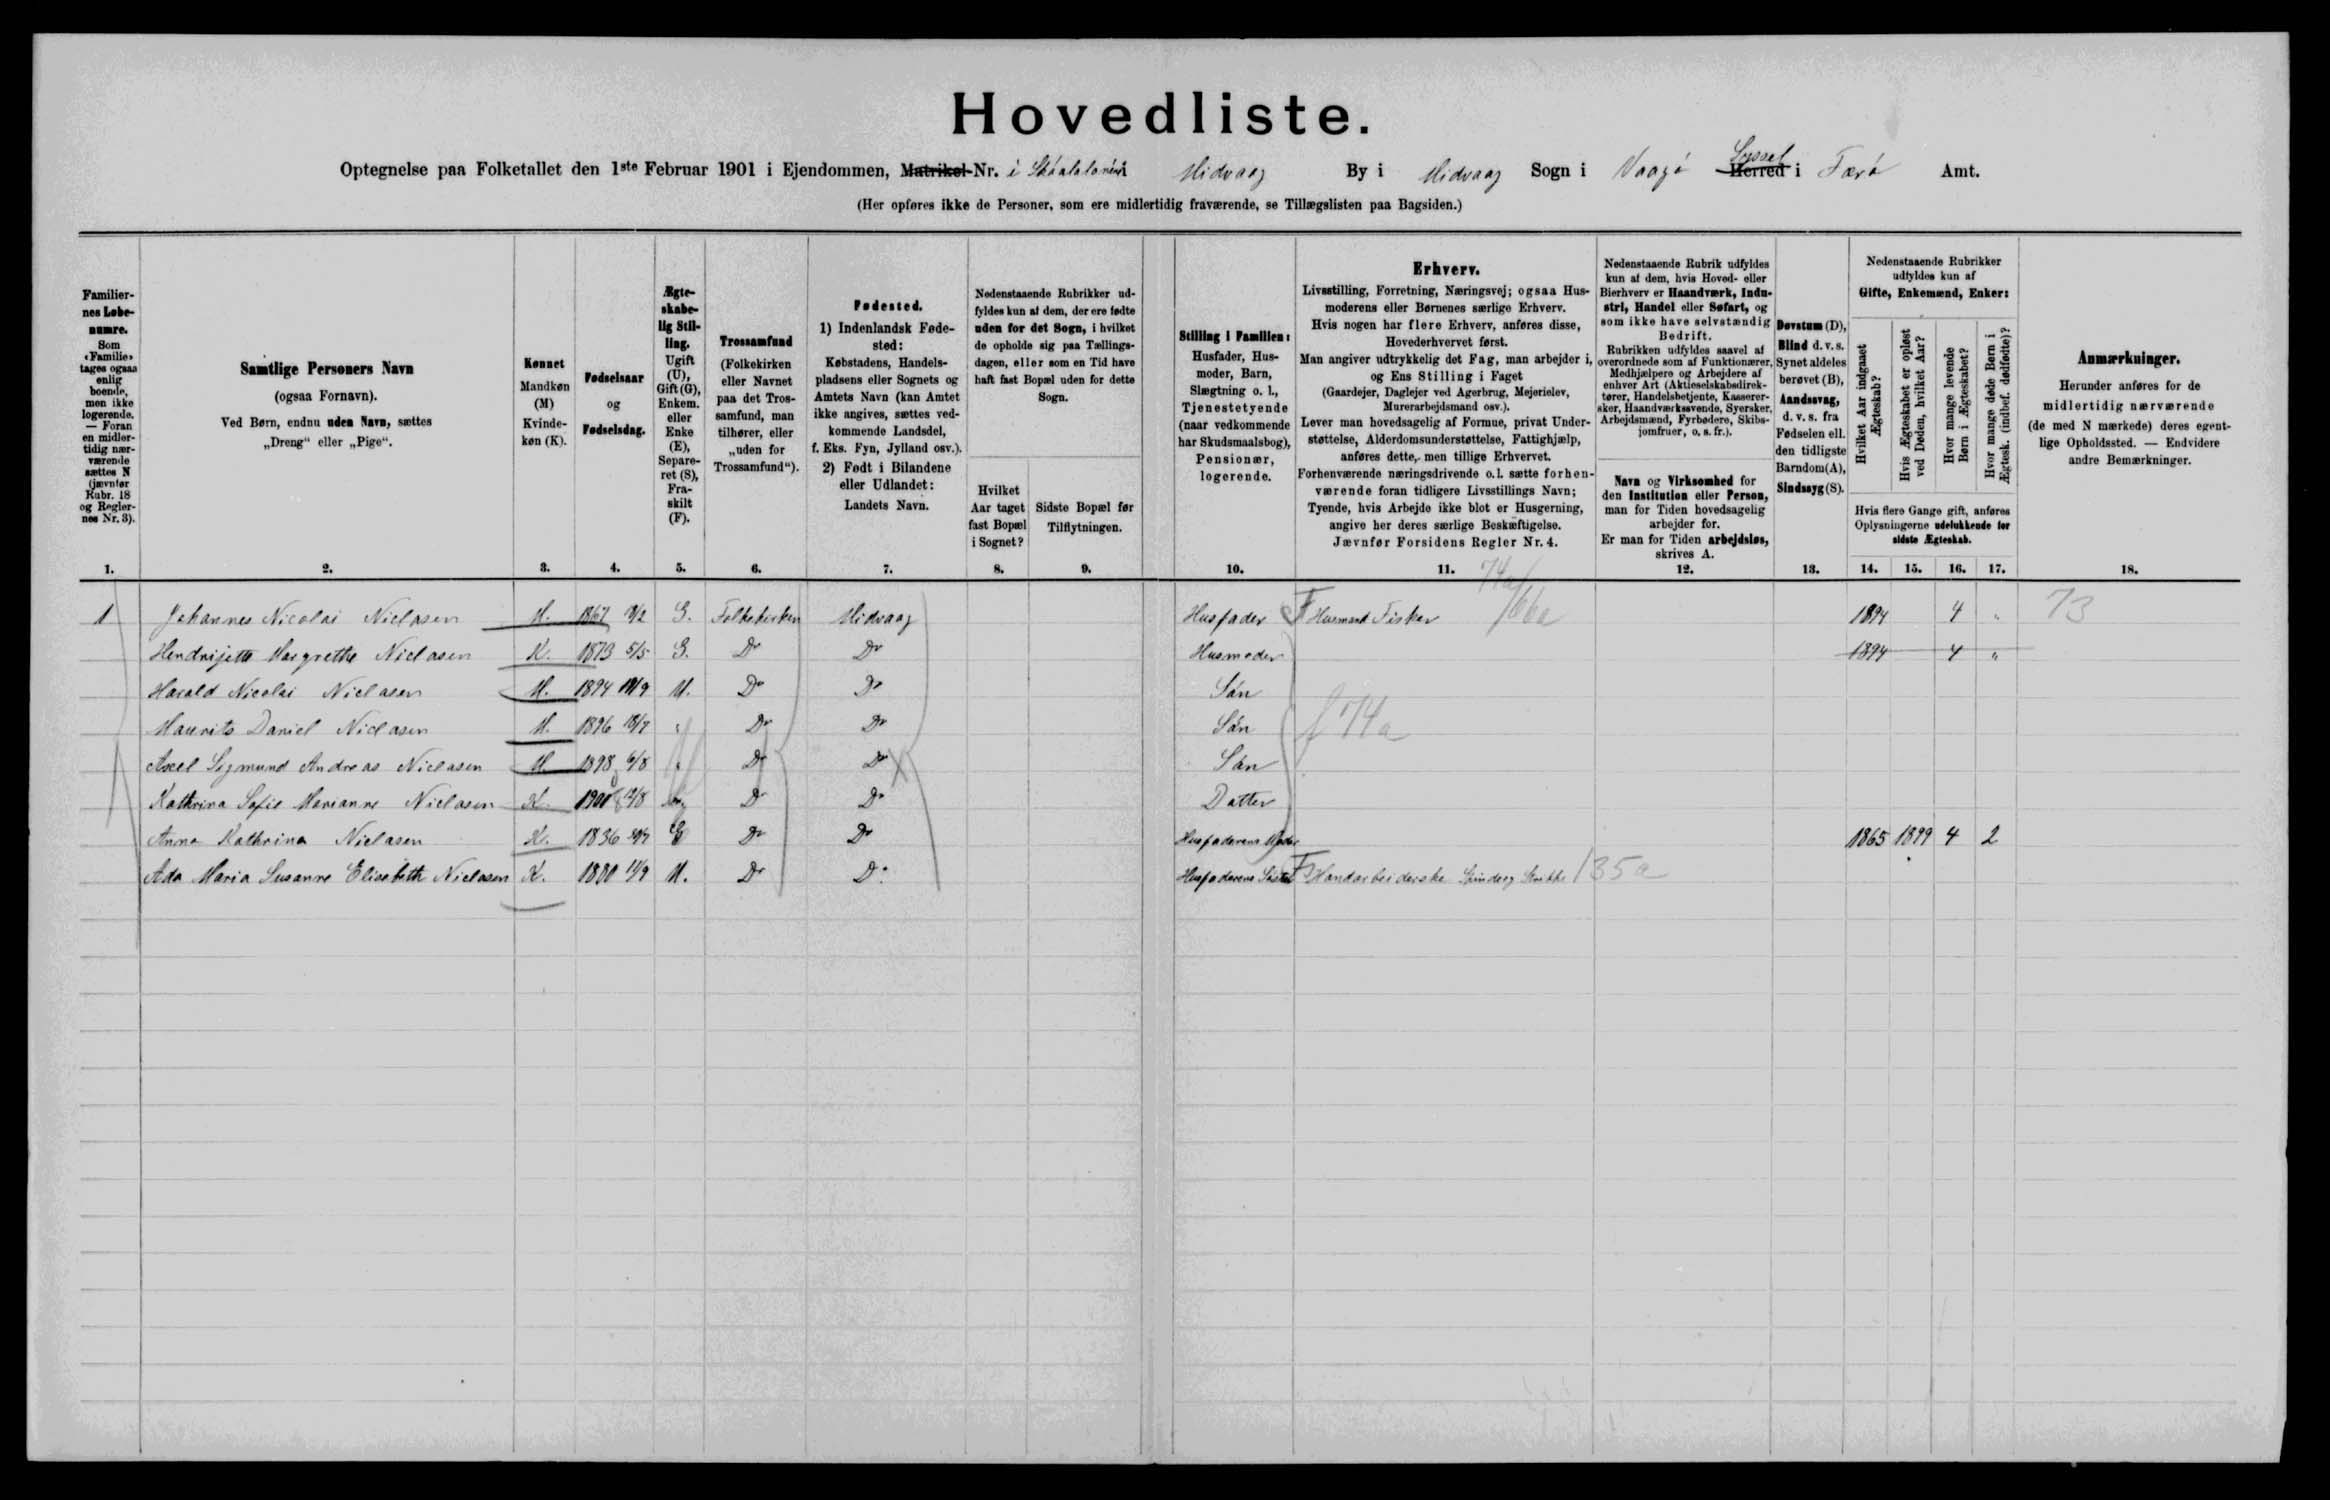 Hovedliste.
Optegnelse paa Folketallet den 1ste Februar 1901 i Ejendommen, Matrikel-Nr. i Midvaag By i Midvaag Sogn i Vaagø Syssel Herred i Færø Amt.
(Her opføres ikke de Personer, som ere midlertidig fraværende, se Tillægslisten paa Bagsiden.)
Familier-
nes Løbe-
numre.
Som
«Familie»
tages ogsaa
enlig
boende,
men ikke
logerende.
— Foran
en midler-
tidig nær-
værende
sættes N
(jævnfør
Rubr. 18
og Regler-
nes Nr. 3).
1.
Samtlige Personers Navn
(ogsaa Fornavn).
Ved Børn, endnu uden Navn, sættes
„Dreng“ eller „Pige“.
2.
Kønnet
Mandkøn
(M)
Kvinde-
køn (K).
3.
Fødselsaar
og
Fødselsdag.
4.
Ægte-
skabe-
lig Stil-
ling.
Ugift
(U),
Gift (G),
Enkem.
eller
Enke
(E),
Separe-
ret (S),
Fra-
skilt
(F).
5.
Trossamfund
(Folkekirken
eller Navnet
paa det Tros-
samfund, man
tilhører, eller
„uden for
Trossamfund“).
6.
Fødested.
1) Indenlandsk Føde-
sted:
Købstadens, Handels-
pladsens eller Sognets og
Amtets Navn (kan Amtet
ikke angives, sættes ved-
kommende Landsdel,
f. Eks. Fyn, Jylland osv.).
2) Født i Bilandene
eller Udlandet:
Landets Navn.
7.
Nedenstaaende Rubrikker ud-
fyldes kun af dem, der ere fødte
uden for det Sogn, i hvilket
de opholde sig paa Tællings-
dagen, eller som en Tid have
haft fast Bopæl uden for dette
Sogn.
Hvilket
Aar taget
fast Bopæl
i Sognet?
8.
Sidste Bopæl før
Tilflytningen.
9.
Stilling i Familien:
Husfader, Hus-
moder, Barn,
Slægtning o. l.,
Tjenestetyende
(naar vedkommende
har Skudsmaalsbog),
Pensionær,
logerende.
10.
Erhverv.
Livsstilling, Forretning, Næringsvej; ogsaa Hus-
moderens eller Børnenes særlige Erhverv.
Hvis nogen har flere Erhverv, anføres disse,
Hovederhvervet først.
Man angiver udtrykkelig det Fag, man arbejder i,
og Ens Stilling i Faget
(Gaardejer, Daglejer ved Agerbrug, Mejerielev,
Murerarbejdsmand osv.).
Lever man hovedsagelig af Formue, privat Under-
støttelse, Alderdomsunderstøttelse, Fattighjælp,
anføres dette, men tillige Erhvervet.
Forhenværende næringsdrivende o.l. sætte forhen-
værende foran tidligere Livsstillings Navn;
Tyende, hvis Arbejde ikke blot er Husgerning,
angive her deres særlige Beskæftigelse.
Jævnfør Forsidens Regler Nr. 4.
11.
Nedenstaaende Rubrik udfyldes
kun af dem, hvis Hoved- eller
Bierhverv er Haandværk, Indu-
stri, Handel eller Søfart, og
som ikke have selvstændig
Bedrift.
Rubrikken udfyldes saavel af
overordnede som af Funktionærer,
Medhjælpere og Arbejdere af
enhver Art (Aktieselskabsdirek-
tører, Handelsbetjente, Kasserer-
sker, Haandværkssvende, Syersker,
Arbejdsmænd, Fyrbødere, Skibs-
jomfruer, o. s. fr.).
Navn og Virksomhed for
den Institution eller Person,
man for Tiden hovedsagelig
arbejder for.
Er man for Tiden arbejdsløs,
skrives A.
12.
Døvstum (D),
Blind d. v. s.
Synet aldeles
berøvet (B),
Aandssvag,
d. v. s. fra
Fødselen ell.
den tidligste
Barndom (A),
Sindssyg (S).
13.
Nedenstaaende Rubrikker
udfyldes kun af
Gifte, Enkemænd, Enker:
Hvilket Aar indgaaet
Ægteskab?
Hvis Ægteskabet er opløst
ved Døden, hvilket Aar?
Hvor mange levende
Børn i Ægteskabet?
Hvor mange døde Børn i
Ægtesk. (indbef. dødfødte)?
Hvis flere Gange gift, anføres
Oplysningerne udelukkende for
sidste Ægteskab.
14. 15. 16. 17.
Anmærkninger.
Herunder anføres for de
midlertidig nærværende
(de med N mærkede) deres egent-
lige Opholdssted. — Endvidere
andre Bemærkninger.
18.
74a/66a
1 Johannes Nicolai Niclasen M. 1867 G. Folkekirken Midvaag Husfader F Husmand Fisker 1894 4 „ 73
Hendrijette Margrethe Niclasen K. 1873 5/5 G. Do Do Husmoder 1894 4 „
Harald Nicolai Niclasen M. 1894 U. Do Do Søn
Maurits Daniel Niclasen M. 1896 18/7 „ Do Do Søn f 74a
Axel Sigmund Andreas Niclasen M 1898 6/8 „ Do Do Søn
Kathrina Sofie Marianne Niclasen K. 1900 12/8 Do Do Datter
Anna Kathrina Niclasen K. 1836 E Do Do Husfaderens Moder 1865 1899 4 2
Ada Maria Susanne Elisabeth Niclasen K. 1880 11/9 U. Do Do Husfaderens Søster F Handarbeiderske 135a